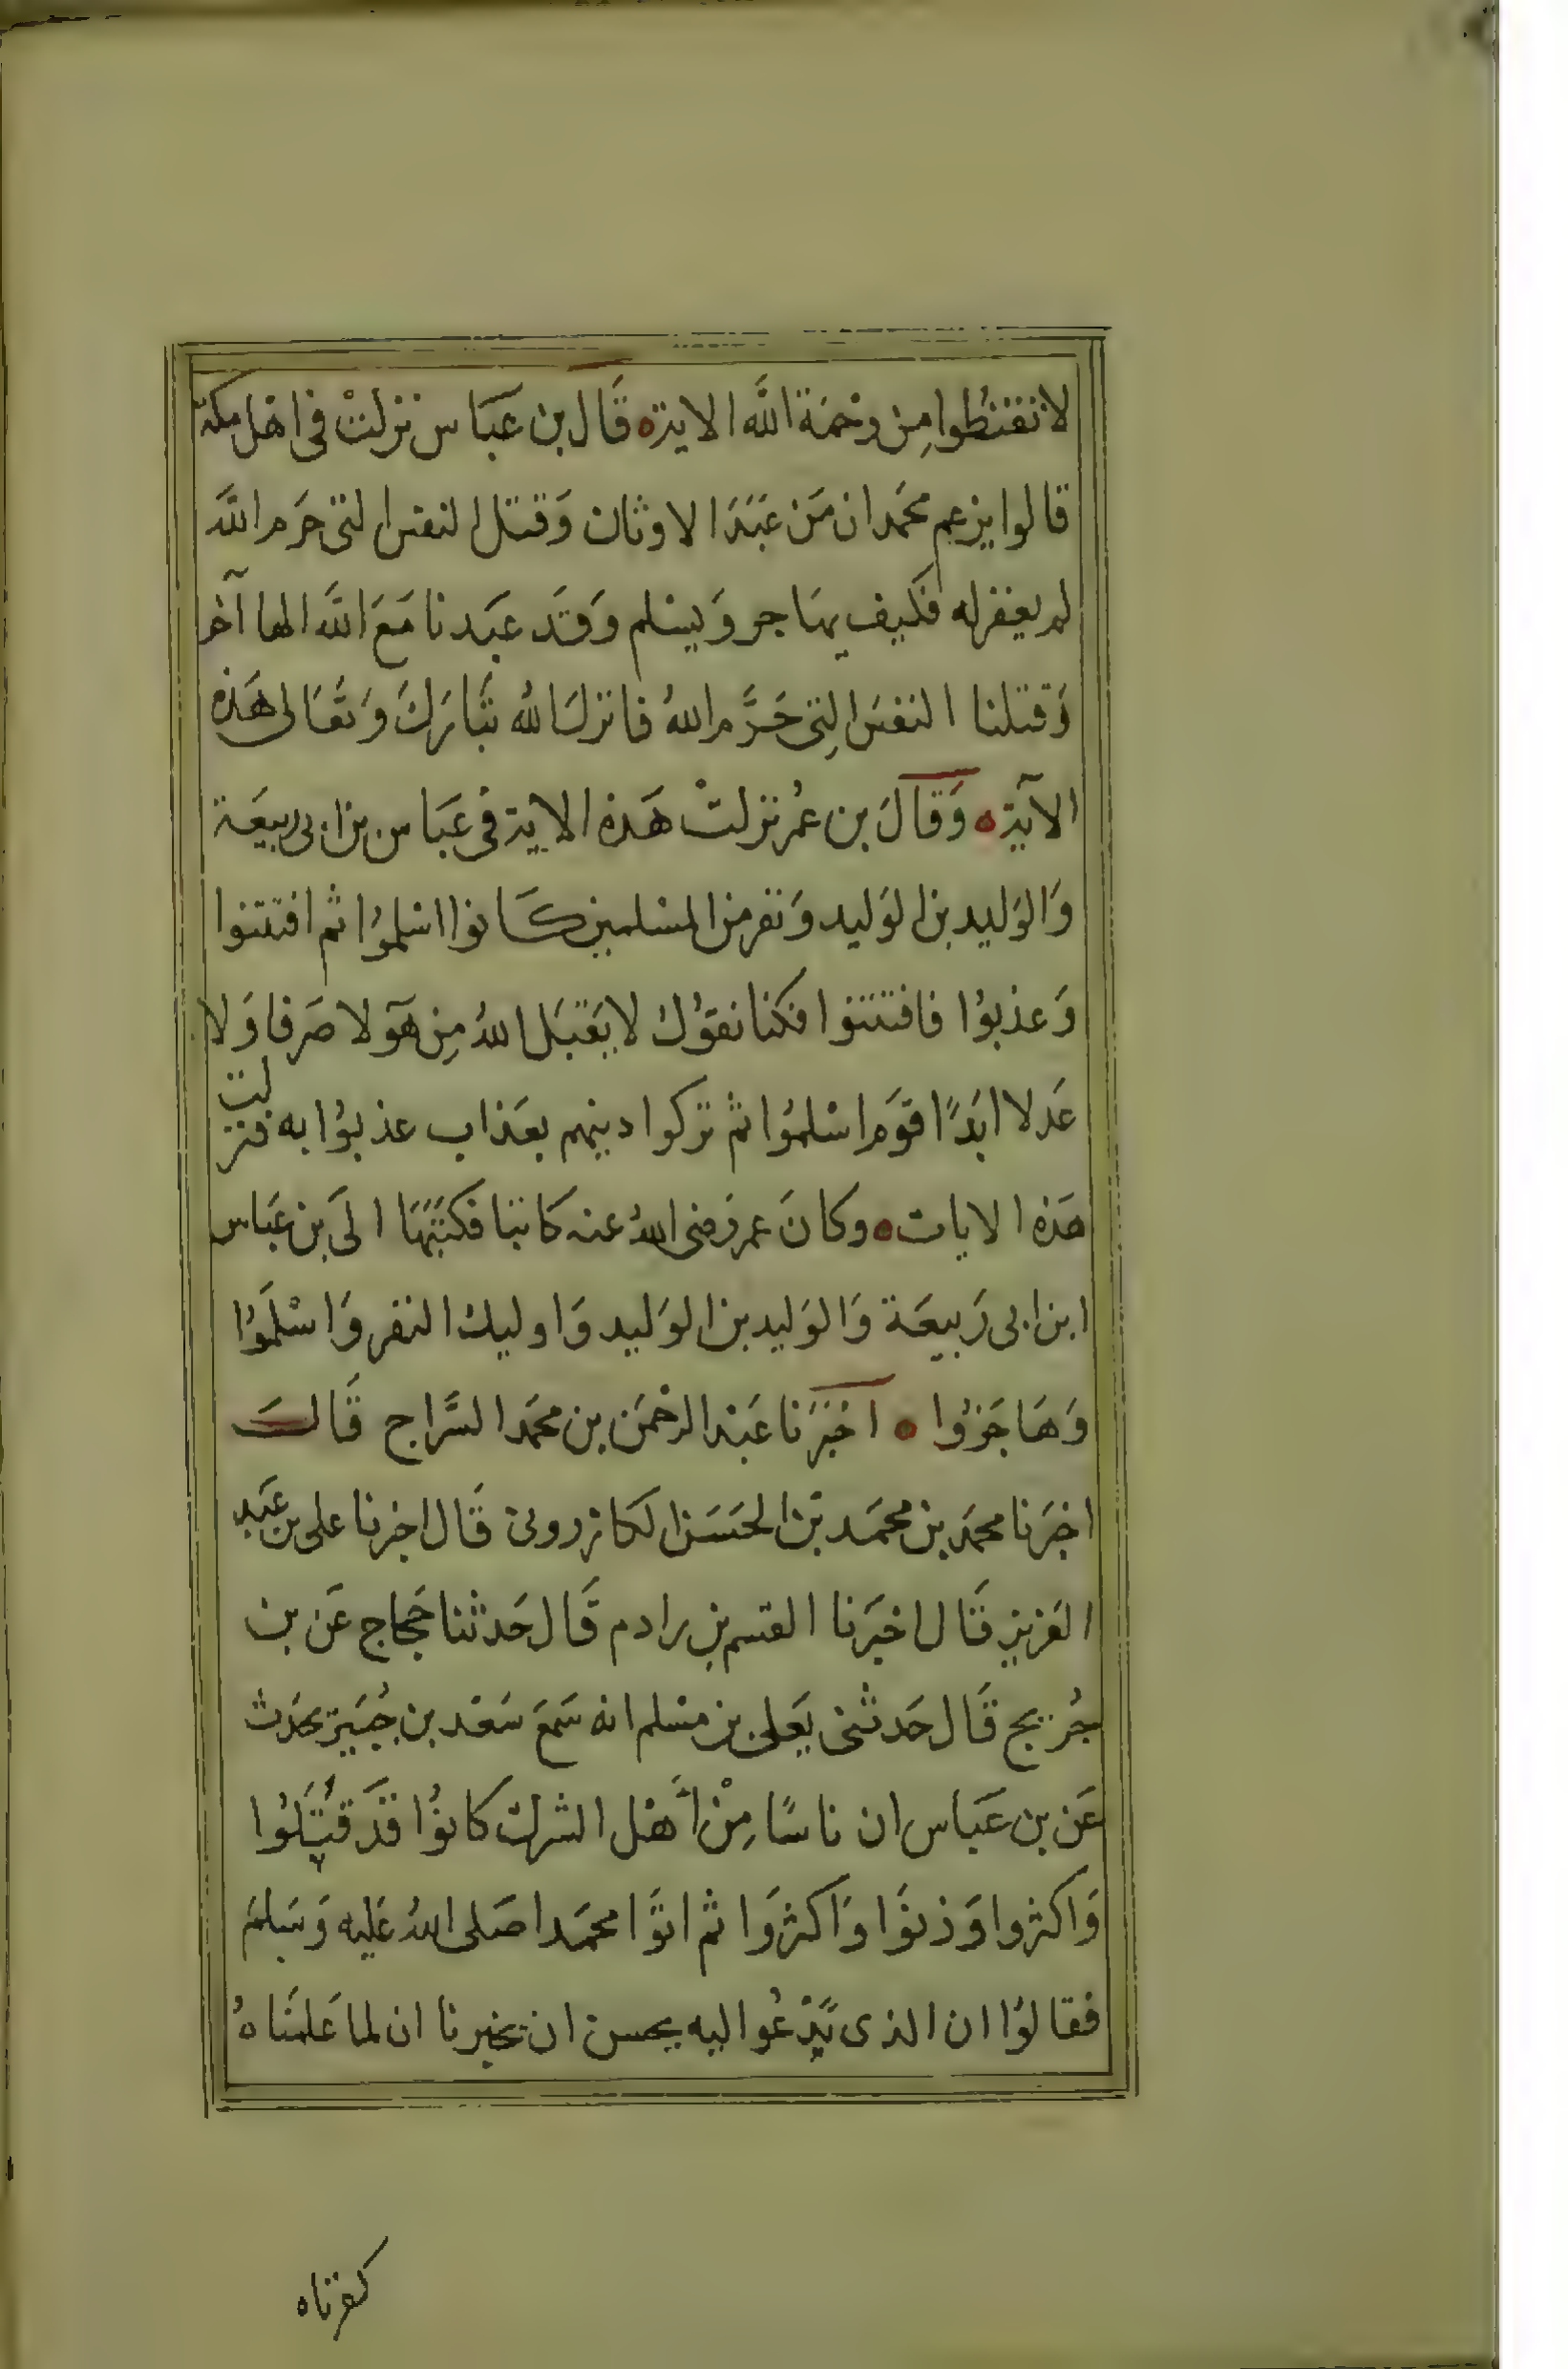 لا تقنطوا مِن رحْمَة اللَّه الاية ه قَال بن عَبَاس نزلتْ فى اهْل مكة
قالوا يزعم محمَد ان مَن عَبَدَ الاوثان وَقتل النفس التى حَرم اللَّه
لم يغفر له فكيف يهَاجر وَيسْلم وَقَد عبَدنا مَعَ اللَّه الها آخر
وَقتلنا النفسَ التِى حَرَّم اللهُ فانزلَ اللهُ تبَارَكَ وَتعَالى هَذه
الآية ه وَقَالَ بن عُمر نزلتْ هَذه الاية فى عَبَاس بن ابى ربيعَة
وَالوَليد بن الوَليد وَنفر من المسْلمين كَانوا اسْلمُوا ثم افتتنوا
وَعذبوُا فافتتنوا فكنا نقوُل لا يَقبَل اللهُ مِن هَولا صَرفا وَلا
عَدلا ابَدًا قوَم اسْلموُا ثم تركوا دينهم بعَذاب عذبوُا به فنزلت
هَذه الايات ه وكانَ عمر رَضى اللهُ عنه كاتبا فكتبَهَا الَى بن عَباس
ابن ابى رَبيعَة وَالوَليد بن الوَليد وَاوليك النفر وَاسْلَمَوُا
وَهَاجَرُوا ه اخْبَرَنا عَبْد الرحْمَن بن محمَد السَّراج قَالَ
اخبَرنا محمَد بن محمَد بَن الحَسَن الكازرونى قَال اخبرنا على بن عَبَد
العَزيز قَال اخبَرنا القسم بن رادم قَال حَدثنا حَجاج عَن بن
جُريج قَال حَدثنى يَعلى بن مسْلم انه سَمعَ سَعْد بن جُبَير يحَدث
عَن بن عَباس ان ناسًا مِنْ أَهْل الشرك كانوُا قَد قتَلُوا
وَاكثروا وَزنوَا وَاكثرَوا ثم اتوَا محمَدا صَلى اللهُ عَليه وَسَلم
فقالوُا ان الذى تَدْعُوا اليه يحسن ان تخبرنا ان لما عَلمنَاهُ
كفرناه